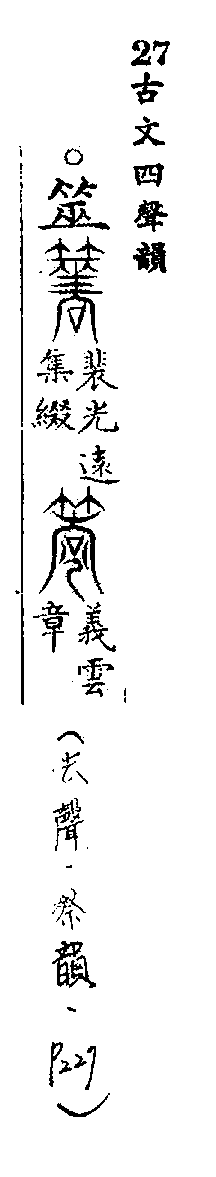 27古文四聲韻
○筮 裴光遠集綴 義雲章
(去聲、祭韻、P.227)